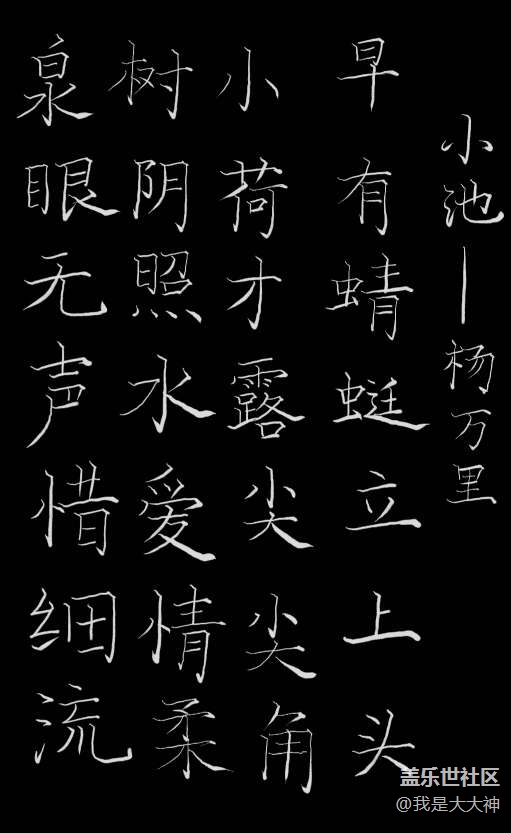 泉眼无声惜细流
树阴照水爱情柔
小荷才露尖尖角
早有蜻蜓立上头
小池—杨万里
盖乐世社区
@我是大大神